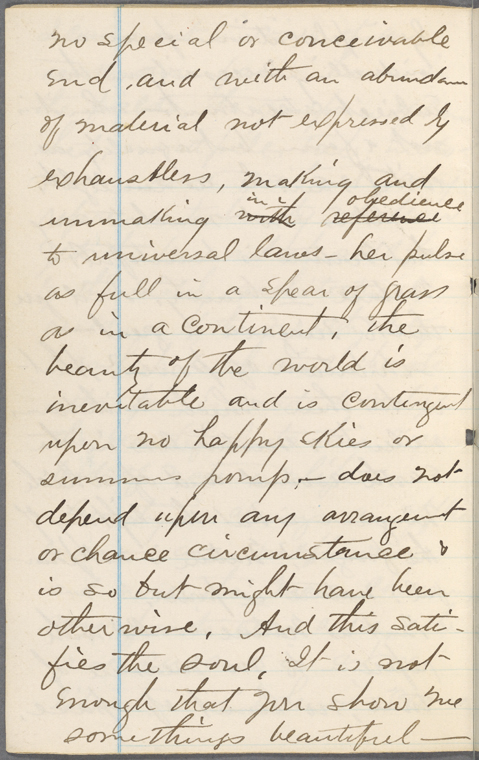 no special or conceivable
end, and with an abundance
of material not expressed by
exhaustless, making and
in obedience
unmaking with reference
to universal laws – her pulse
as full in a spear of grass
as in a continent; the
beauty of the world is
inevitable and is contingent
upon no happy skies or
summer pomp, – does not
depend upon any arrangement
or chance circumstance &
is so but might have been
otherwise. And this sati-
fies the soul. It is not
enough that you show me
somethings beautiful —